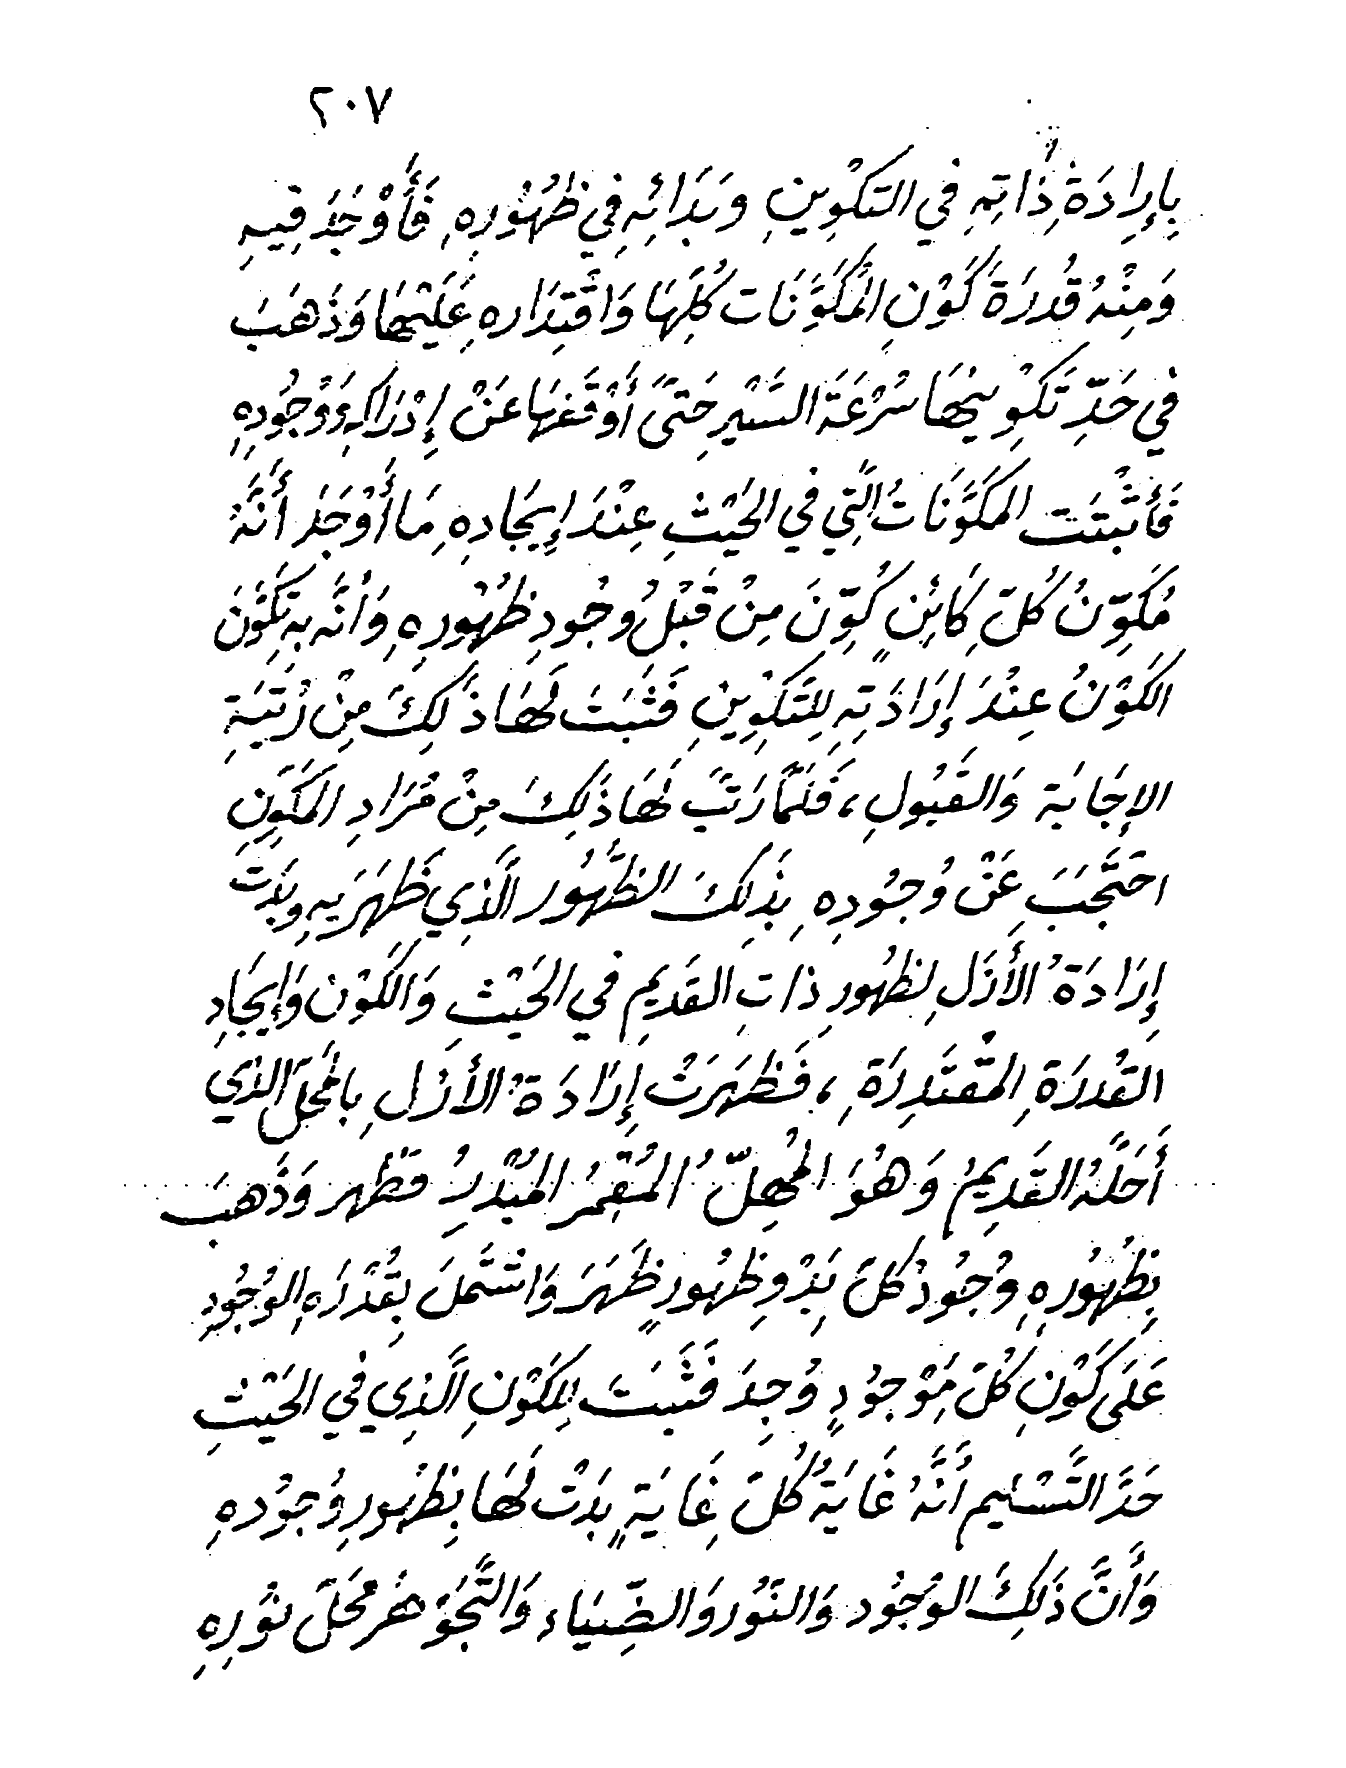 ٢٠٧
بِإِرَادَةِ ذَاتِهِ فِي التَكْوِينِ وَبَدَائِهِ فِي ظُهُوْرِهِ، فَأَوْجَدَ فِيهِ
وَمِنْهُ قُدرَةَ كَوْنِ المُكَوَّنَات كُلِّهَا وَاقْتِدَاره عَلَيْهَا وَذَهَبَ
فِي حَدِّ تَكْوِينِهَا سُرْعَةَ السَّيْرِ حَتىَّ أَوْقَفَهَا عَنْ إِدْرَاكِهِ وَوُجُودِهِ
فَأَثْبَتَت المكَوَّنَاتُ الَّتِي فِي الحَيْثِ عِنْدَ إِيجَادِهِ مَا أَوْجَدَ أَنَّهُ
مُكَوِّنُ كُلِّ كَائِنٍ كُوِّنَ مِنْ قَبْلِ وُجُودِ ظُهُوْرِهِ وَأَنَّه بِهِ تَكَوَّنَ
الكَوْنُ عِنْدَ إِرَادَتِهِ لِلتَّكوِينِ فَثَبَتَ لَهَا ذَلِكَ مِنْ رُتبَةِ
الإِجَابَة وَالقَبُولِ، فَلَمَّا رَتَّبَ لَهَا ذَلِكَ مِنْ مُرَادِ المكَوِّنِ
احتَجَبَ عَنْ وُجُودِه بِذَلِكَ الظُّهُور الَّذِي ظَهَرَ بِهِ وبَدَت
إِرَادَةُ الأَزَلِ لِظهُورِ ذاتِ القَدِيمِ فِي الحَيْثِ وَالكَوْن وَإِيجَادِ
القُدرَةِ المقتَدِرَةِ، فَظَهَرَتْ إِرَادَةُ الأَزلِ بِالمحَلِّ الذي
أَحَلَّهُ القَدِيمُ وَهُوَ المُهِلّ المُقْمِرُ المُبْدِرُ فظهر وَذَهَبَ
بِظُهُورِهِ وُجُودُ كلِّ بَدْوِ ظهُورٍ ظَهَرَ وَاشْتَمَلَ بِقُدْرَةِ الوُجُودِ
عَلَى كَوْنِ كُلِّ مَوْجُودٍ وُجِدَ فَثَبتَ لِلكَوْنِ الَّذِي فِي الحَيْثِ
حَدَّ التَّسْلِيم أَنَّهُ غَايَةُ كُلِّ غَايَةٍ بَدَتْ لَهَا بِظهُورِ وُجُودهِ
وَأَنَّ ذَلِكَ الوُجُود وَالنُّوْر وَالضِّيَاء وَالتَّجَوْهُر مَحَلّ نُوْرِهِ